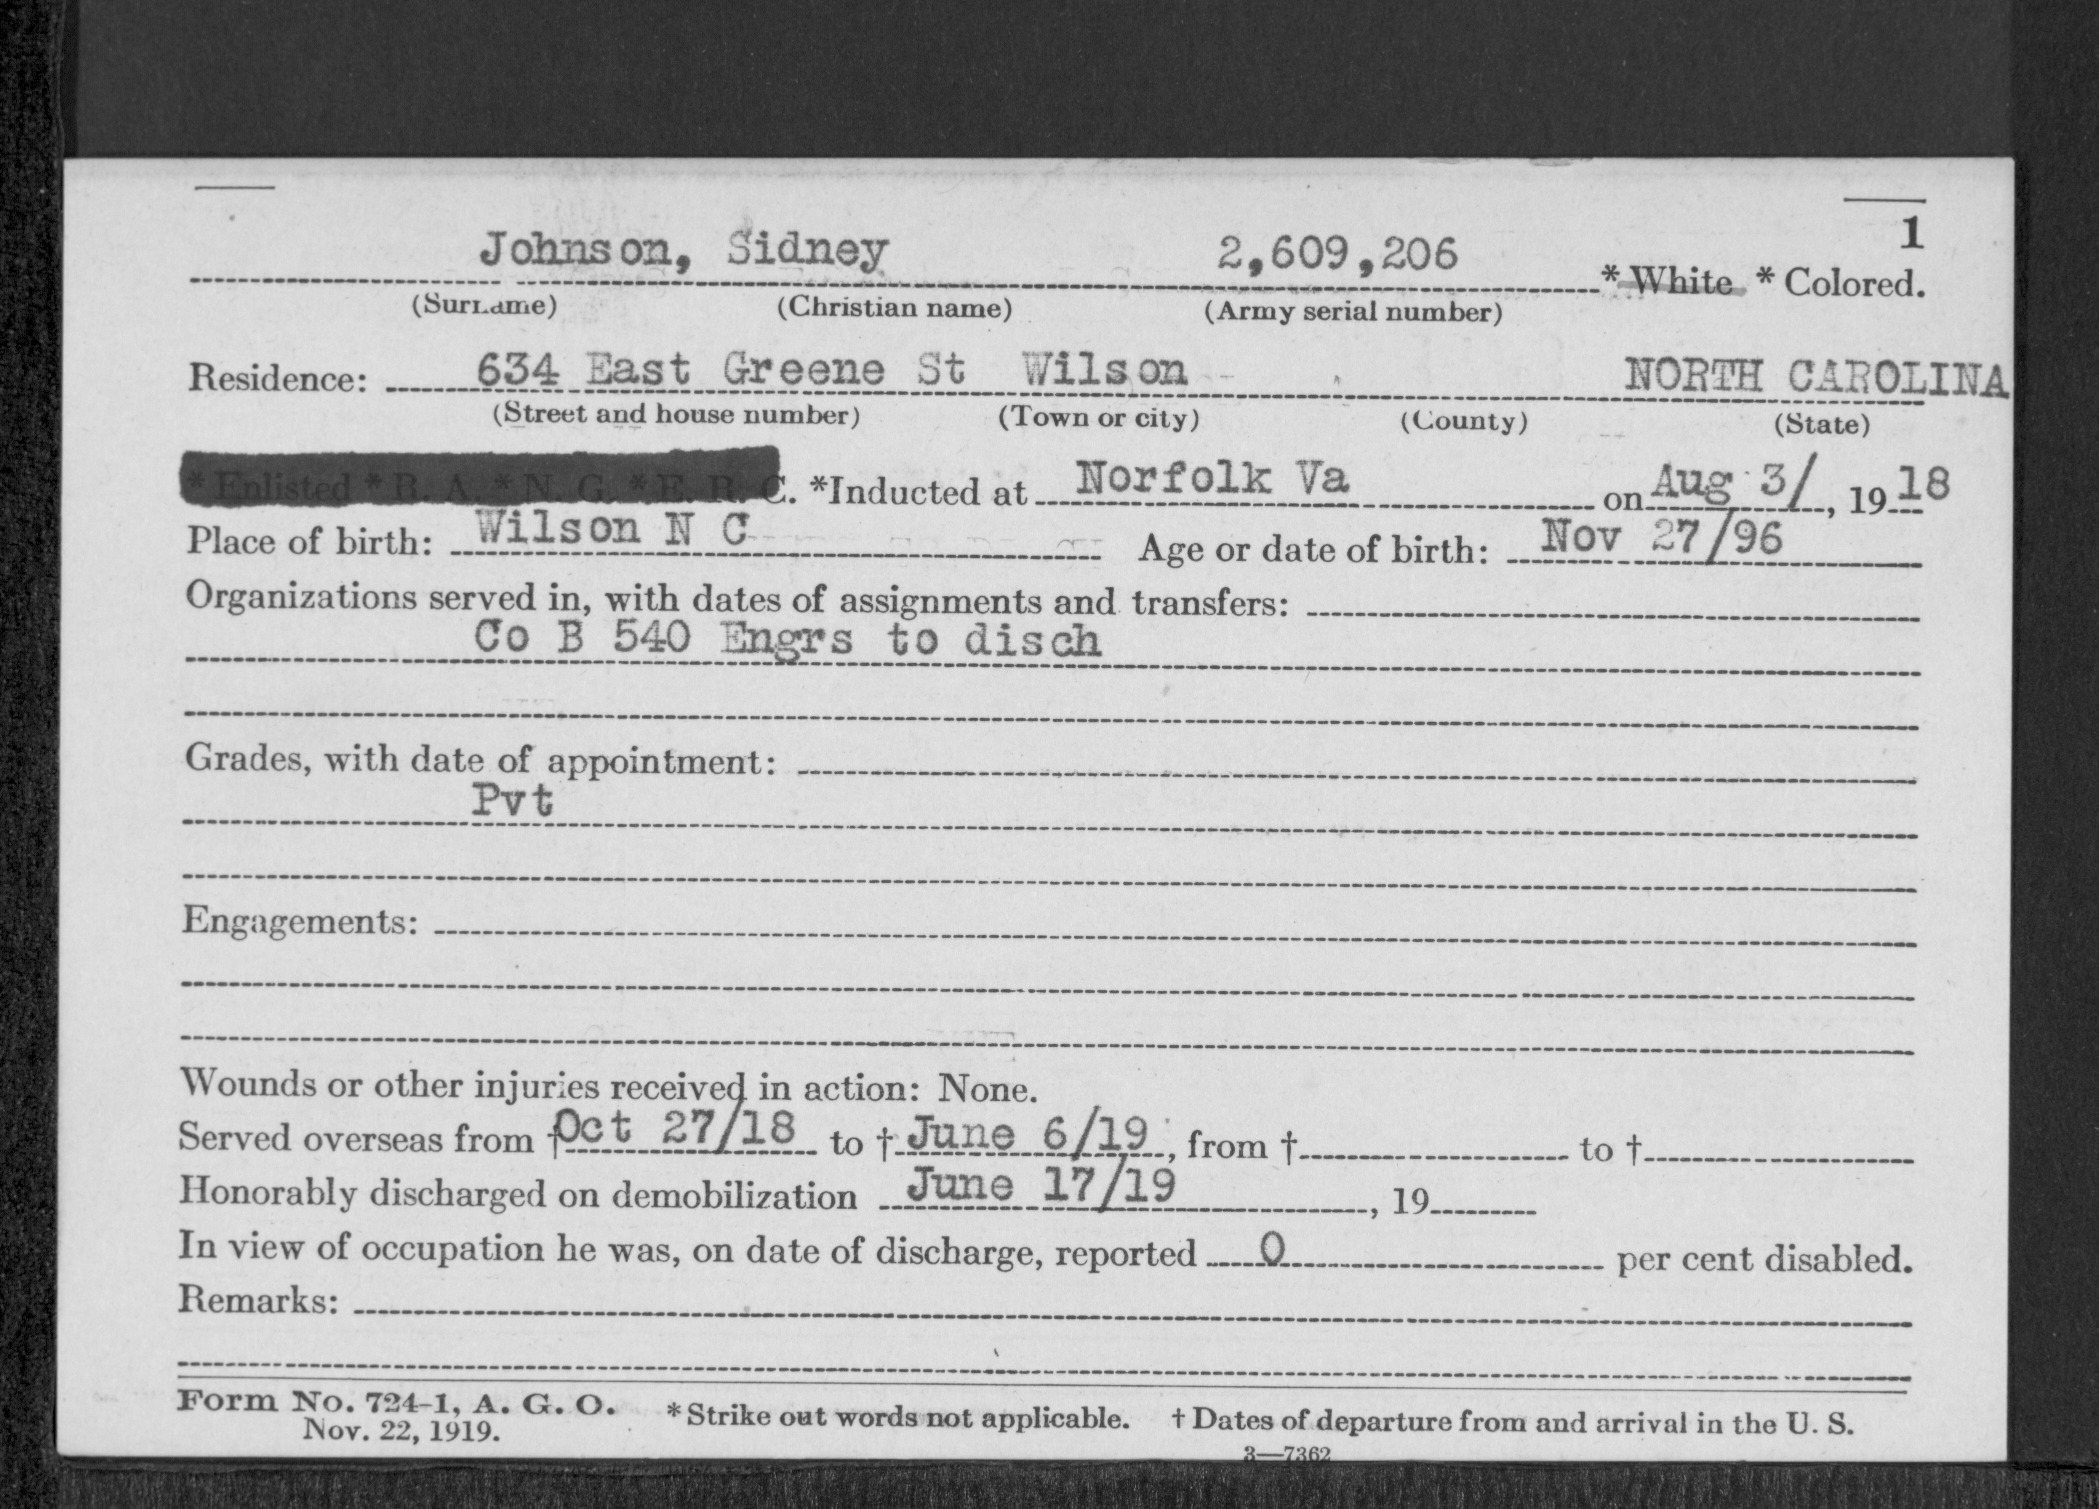 1
Johnson, Sidney 2,609,206 * White * Colored.
(Surname) (Christian name) (Army serial number)
Residence: 634 East Greene St Wilson NORTH CAROLINA
(Street and house number) (Town or city) (County) (State)
* Enlisted * R. A. * N. G. * E. R. C. *Inducted at Norfolk Va on Aug 3/, 19 18
Place of birth: Wilson N C Age or date of birth: Nov 27/96
Organizations served in, with dates of assignments and transfers:
Co B 540 Engrs to disch
Grades, with date of appointment:
Pvt
Engagements:
Wounds or other injuries received in action: None.
Served overseas from † Oct 27/18 to † June 6/19, from † to †
Honorably discharged on demobilization June 17/19, 19
In view of occupation he was, on date of discharge, reported 0 per cent disabled.
Remarks:
Form No. 724-1, A. G. O. * Strike out words not applicable. † Dates of departure from and arrival in the U. S.
Nov. 22, 1919.
3—7362